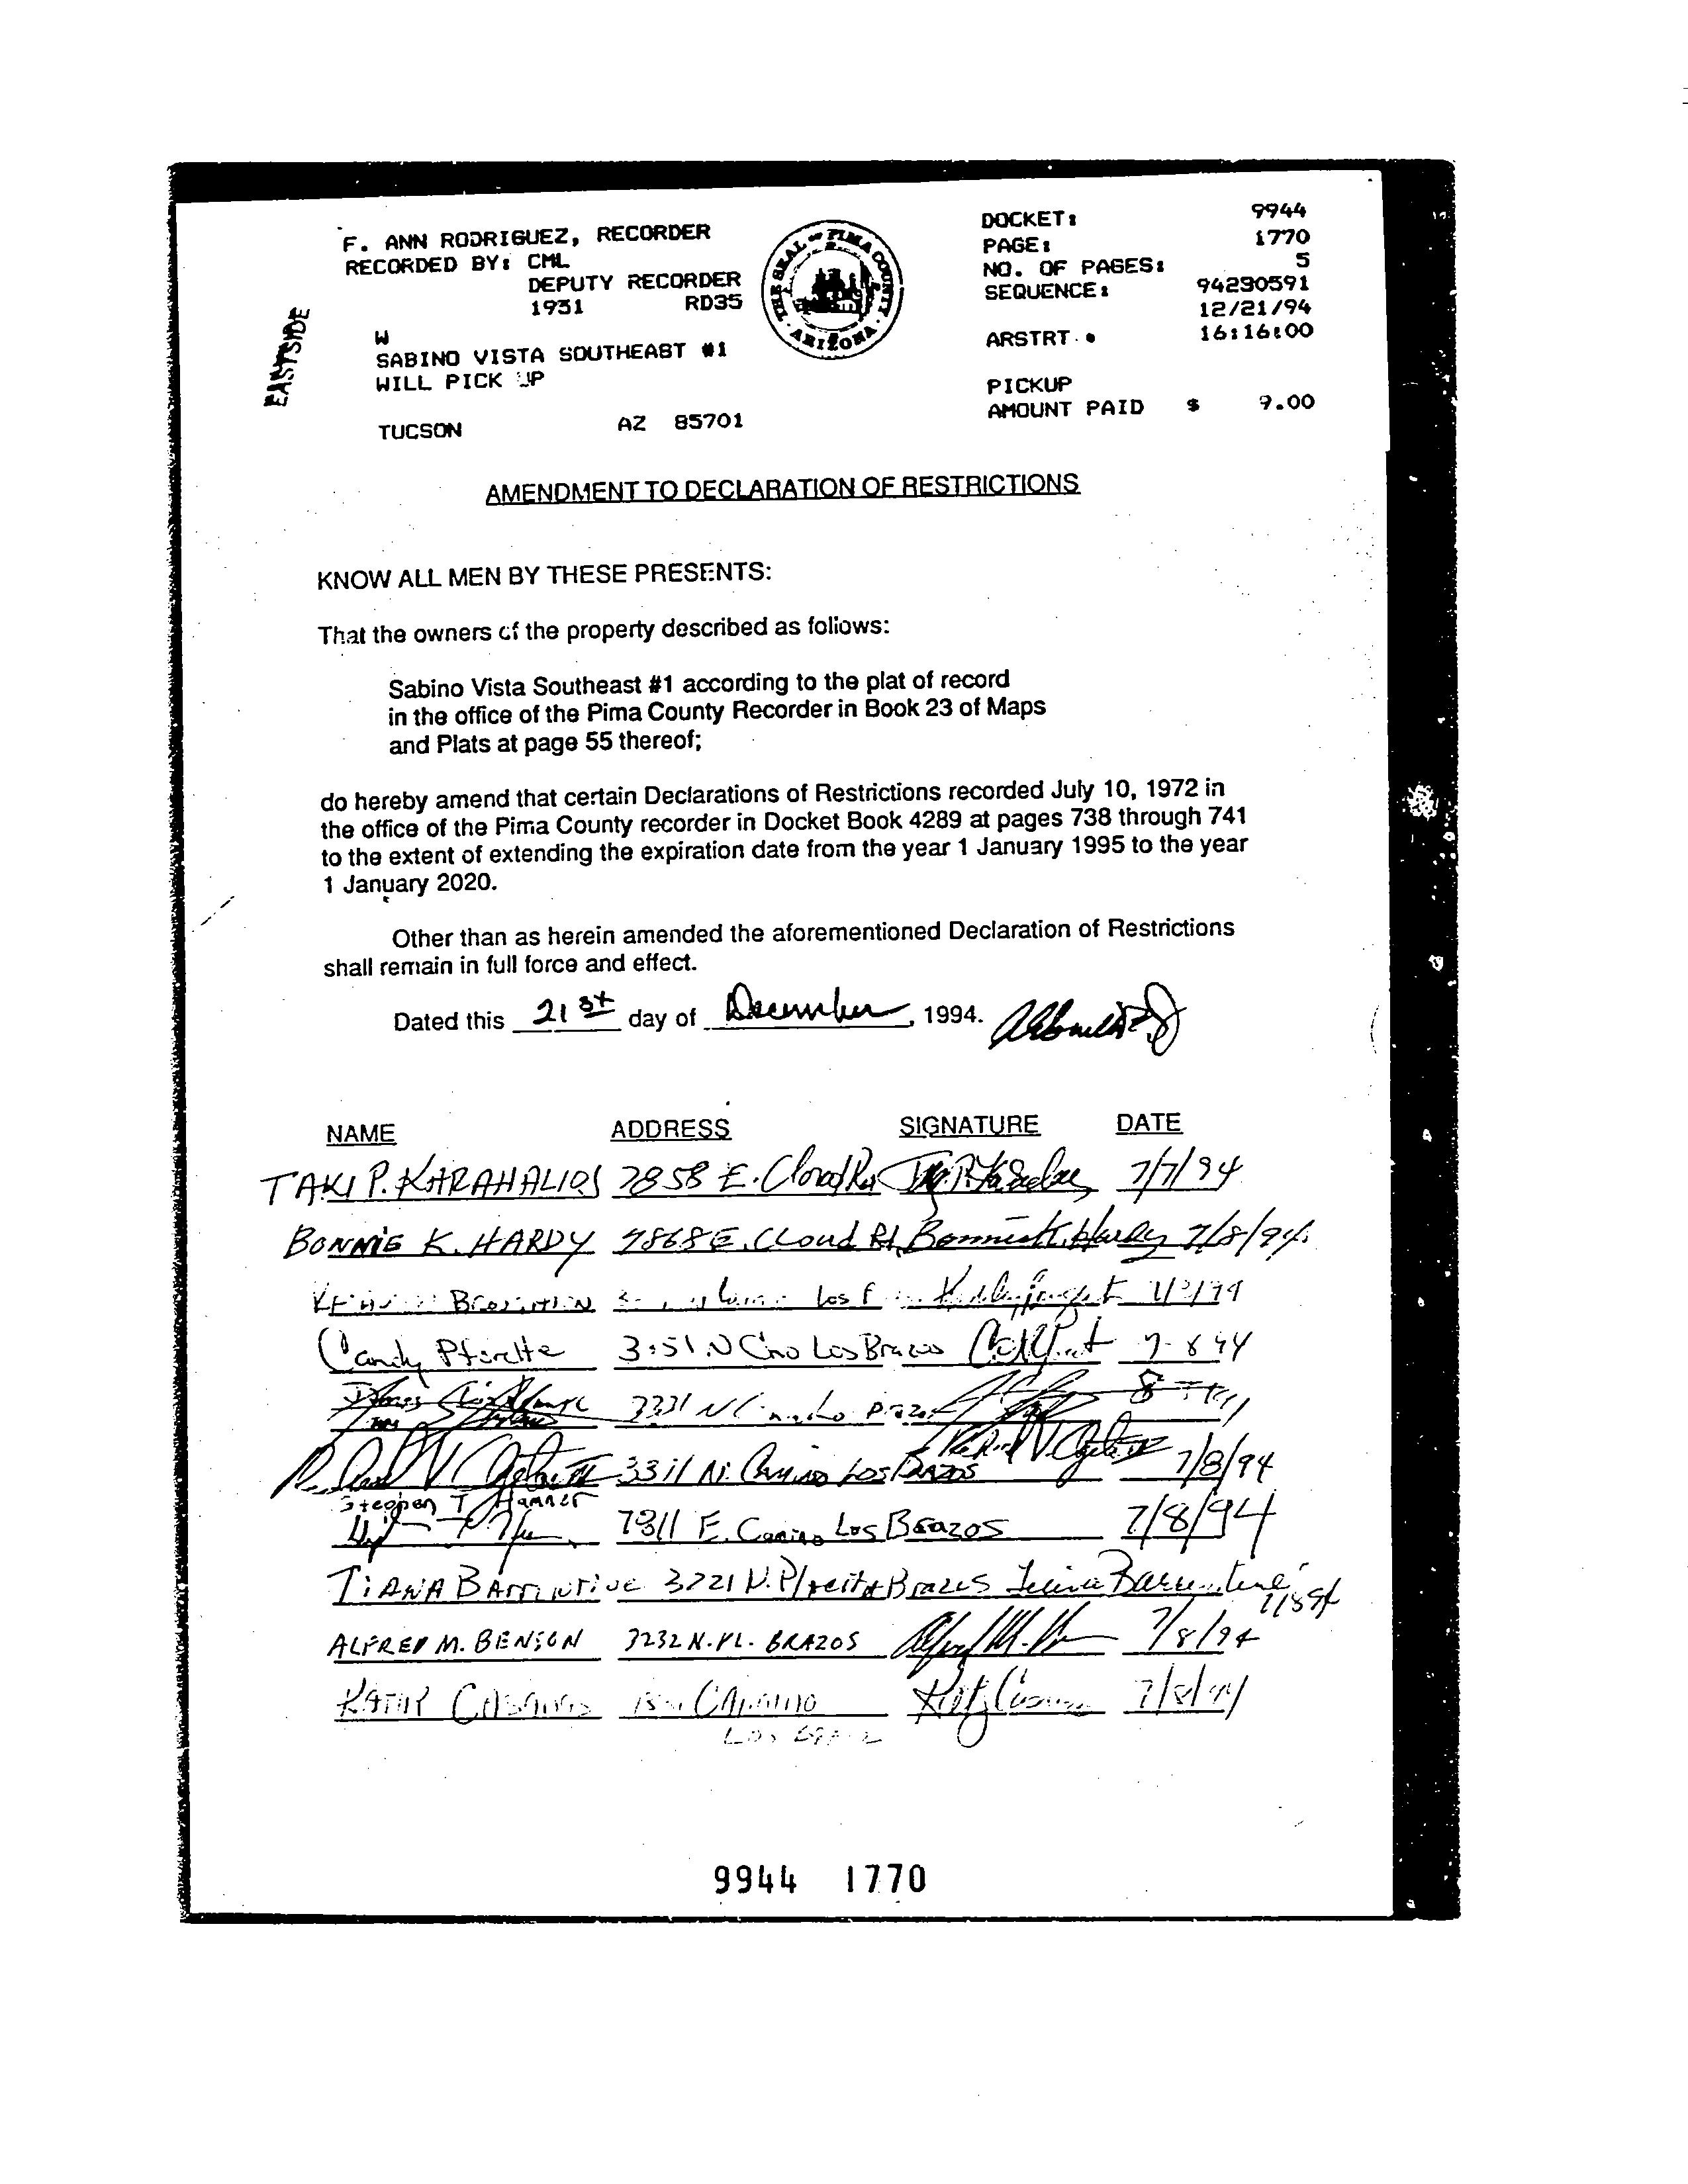 EASTSIDE
F. ANN RODRIGUEZ, RECORDER
RECORDED BY: CML
DEPUTY RECORDER
1931 RD35
W
SABINO VISTA SOUTHEAST #1
WILL PICK UP
TUCSON AZ 85701
THE SEAL OF PIMA COUNTY
ARIZONA
DOCKET: 9944
PAGE: 1770
NO. OF PAGES: 5
SEQUENCE: 94230591
12/21/94
ARSTRT 16:16:00
PICKUP
AMOUNT PAID $ 9.00
AMENDMENT TO DECLARATION OF RESTRICTIONS
KNOW ALL MEN BY THESE PRESENTS:
That the owners of the property described as follows:
Sabino Vista Southeast #1 according to the plat of record
in the office of the Pima County Recorder in Book 23 of Maps
and Plats at page 55 thereof;
do hereby amend that certain Declarations of Restrictions recorded July 10, 1972 in
the office of the Pima County recorder in Docket Book 4289 at pages 738 through 741
to the extent of extending the expiration date from the year 1 January 1995 to the year
1 January 2020.
Other than as herein amended the aforementioned Declaration of Restrictions
shall remain in full force and effect.
Dated this 21st day of December, 1994.
NAME ADDRESS SIGNATURE DATE
TAKI P. KARAHALIOS 7858 E. Cloud Rd 7/7/94
BONNIE K. HARDY 7868 E. Cloud Rd, Bonnie K. Hardy 7/8/94
Los
Candy N Cno Los Brazos 7-8 94
3331 N
3311 N. Camino Los Brazos 7/8/94
Stephen T Hamner
7811 E. Camino Los Brazos 7/8/94
TIANA 3221 N. Placita Brazos 7/8/94
ALFRED M. BENSON 3232 N. PL. BRAZOS 7/8/94
KATHY CAMINO 7/8/94
LOS
9944 1770